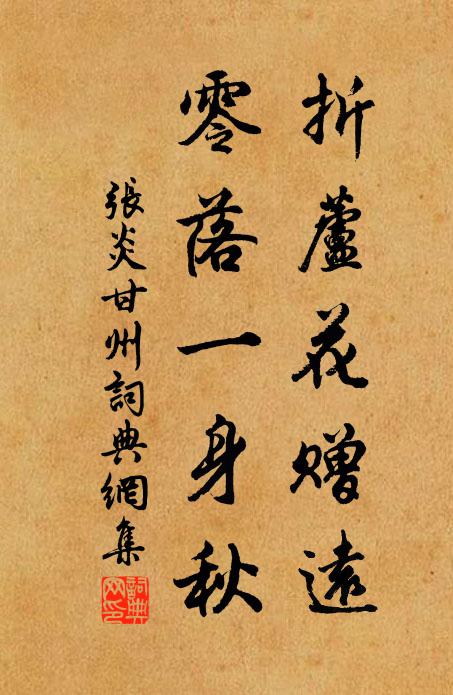 折蘆花贈遠
零落一身秋
張炎甘州詞典網集
詞典
网印